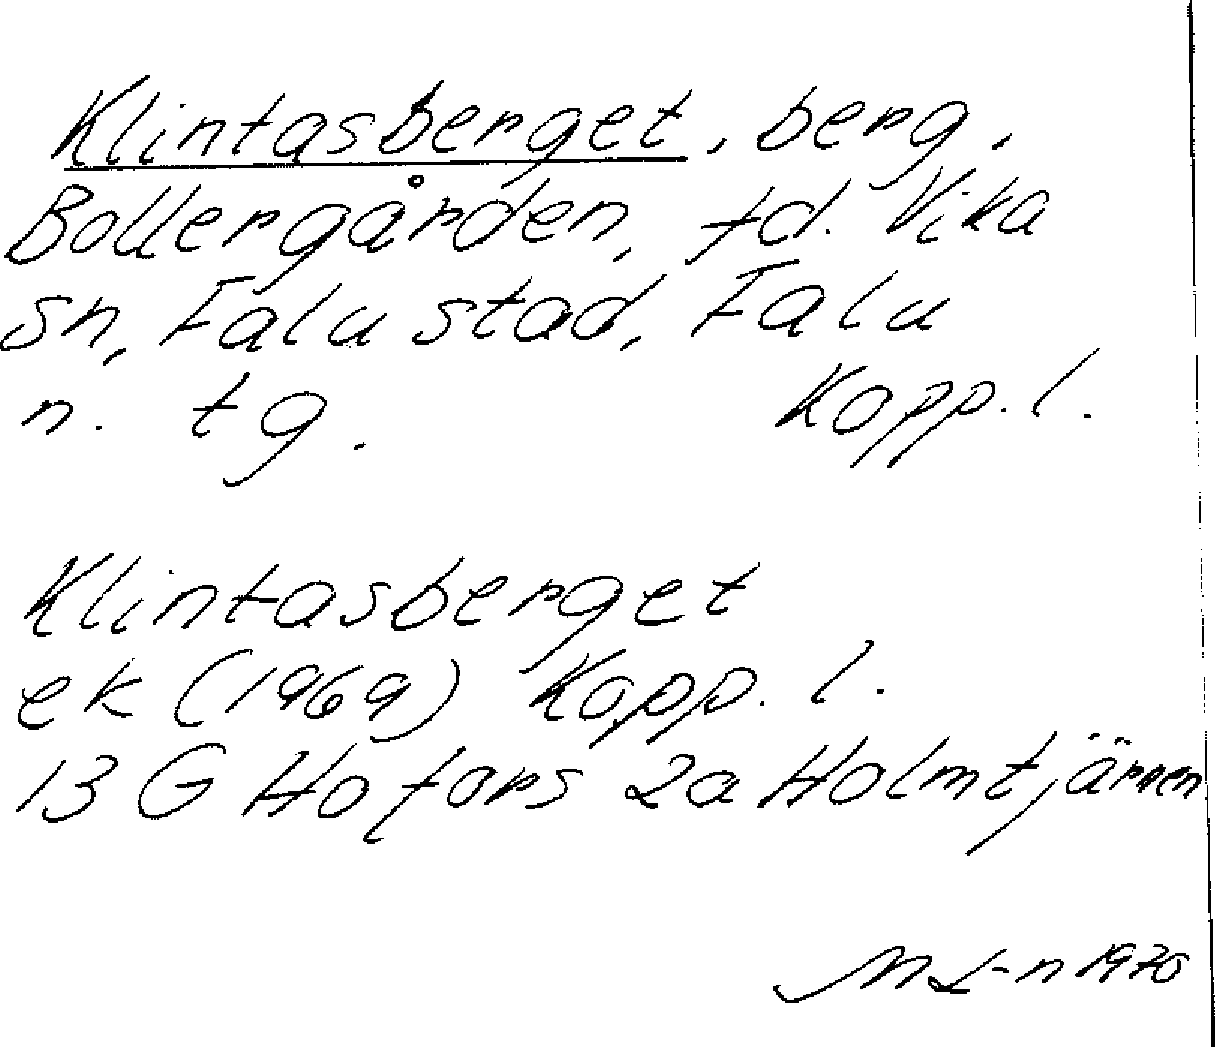 Klintasberget, berg,
Bollergården, f.d. Vika
sn, Falu stad, Falu
n. tg. Kopp. l.
Klintasberget
ek (1969) Kopp. l.
13 G Hofors 2a Holmtjärnen
M L-n 1970